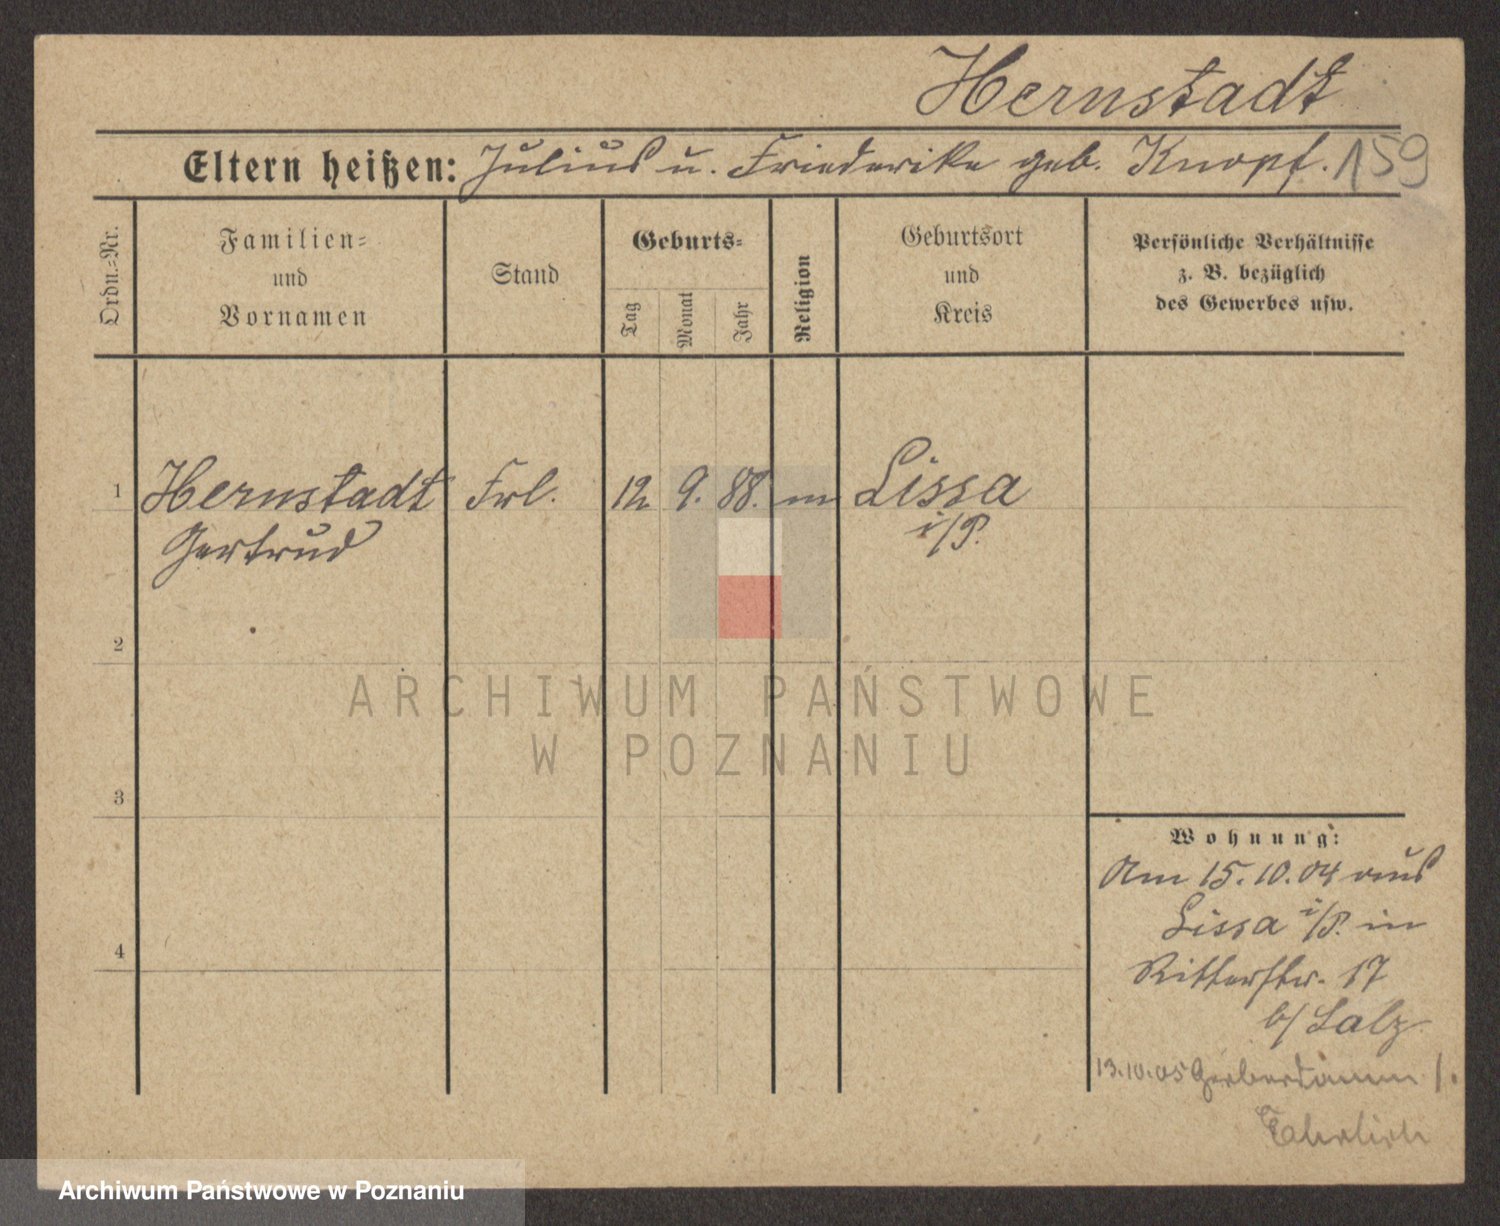 Hernstadt
Eltern heißen: Julius u. Friederike geb. Knopf. 159
Ordn.-Nr.
Familien-
und
Vornamen
Stand
Geburts-
Tag
Monat
Jahr
Religion
Geburtsort
und
Kreis
Persönliche Verhältnisse
z. B. bezüglich
des Gewerbes usw.
1 Hernstadt Frl. 12. 9. 88. m Lissa
Gertrud i/P.
2
3
4
Wohnung:
Am 15.10.04 aus
Lissa i/P. in
Ritterstr. 17
b/ Salz
13.10.05 Gerberdamm 1.
Ehrlich
ARCHIWUM PAŃSTWOWE
W POZNANIU
Archiwum Państwowe w Poznaniu